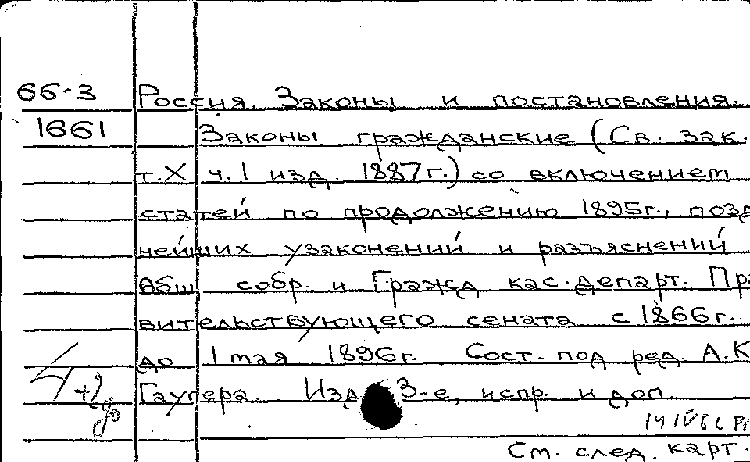 66-3 Россия. Законы и постановления.
1661 Законы гражданские (Св. зак.
т. X ч. 1 изд. 1887 г.) со включением
статей по продолжению 1895г., позд
нейших узаконений и разъяснений
Общ. собр. и Гражд кас. департ. Пра
вительствующего сената с 1866г.
до 1 мая 1896г. Сост. под ред. А.К.
Гаугера. Изд. 3-е, испр. и доп.
См. след. карт.